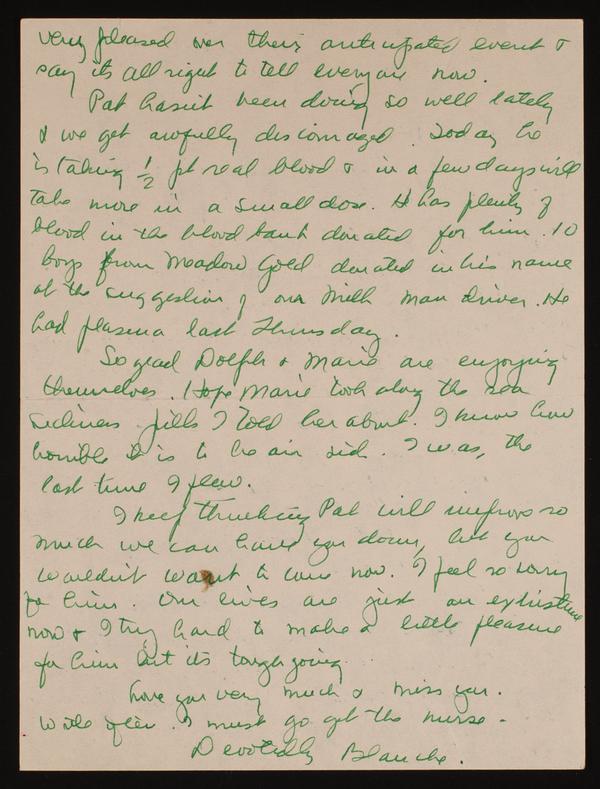 very pleased over their anticipated event &
say its all right to tell everyone now.
Pat hasn't been doing so well lately
& we get awfully discouraged. Today he
is taking ½ pt real blood & in a few days will
take more in a small dose. He has plenty of
blood in the blood bank donated for him. 10
boys from Meadow Gold donated in his name
at the suggestion of our milk man driver. He
had plasma last Thursday.
So glad Dolph & Marie are enjoying
themselves. Hope Marie took along the sea
sickness pills I told her about. I know how
horrible it is to be air sick. I was, the
last time I flew.
I keep thinking Pat will improve so
much we can have you down, but you
wouldn't want to come now. I feel so sorry
for him. Our lives are just an existence
now & I try hard to make a little pleasure
for him but its tough going.
Love you very much & miss you.
Write often. I must go get the nurse -
Devotedly Blanche.